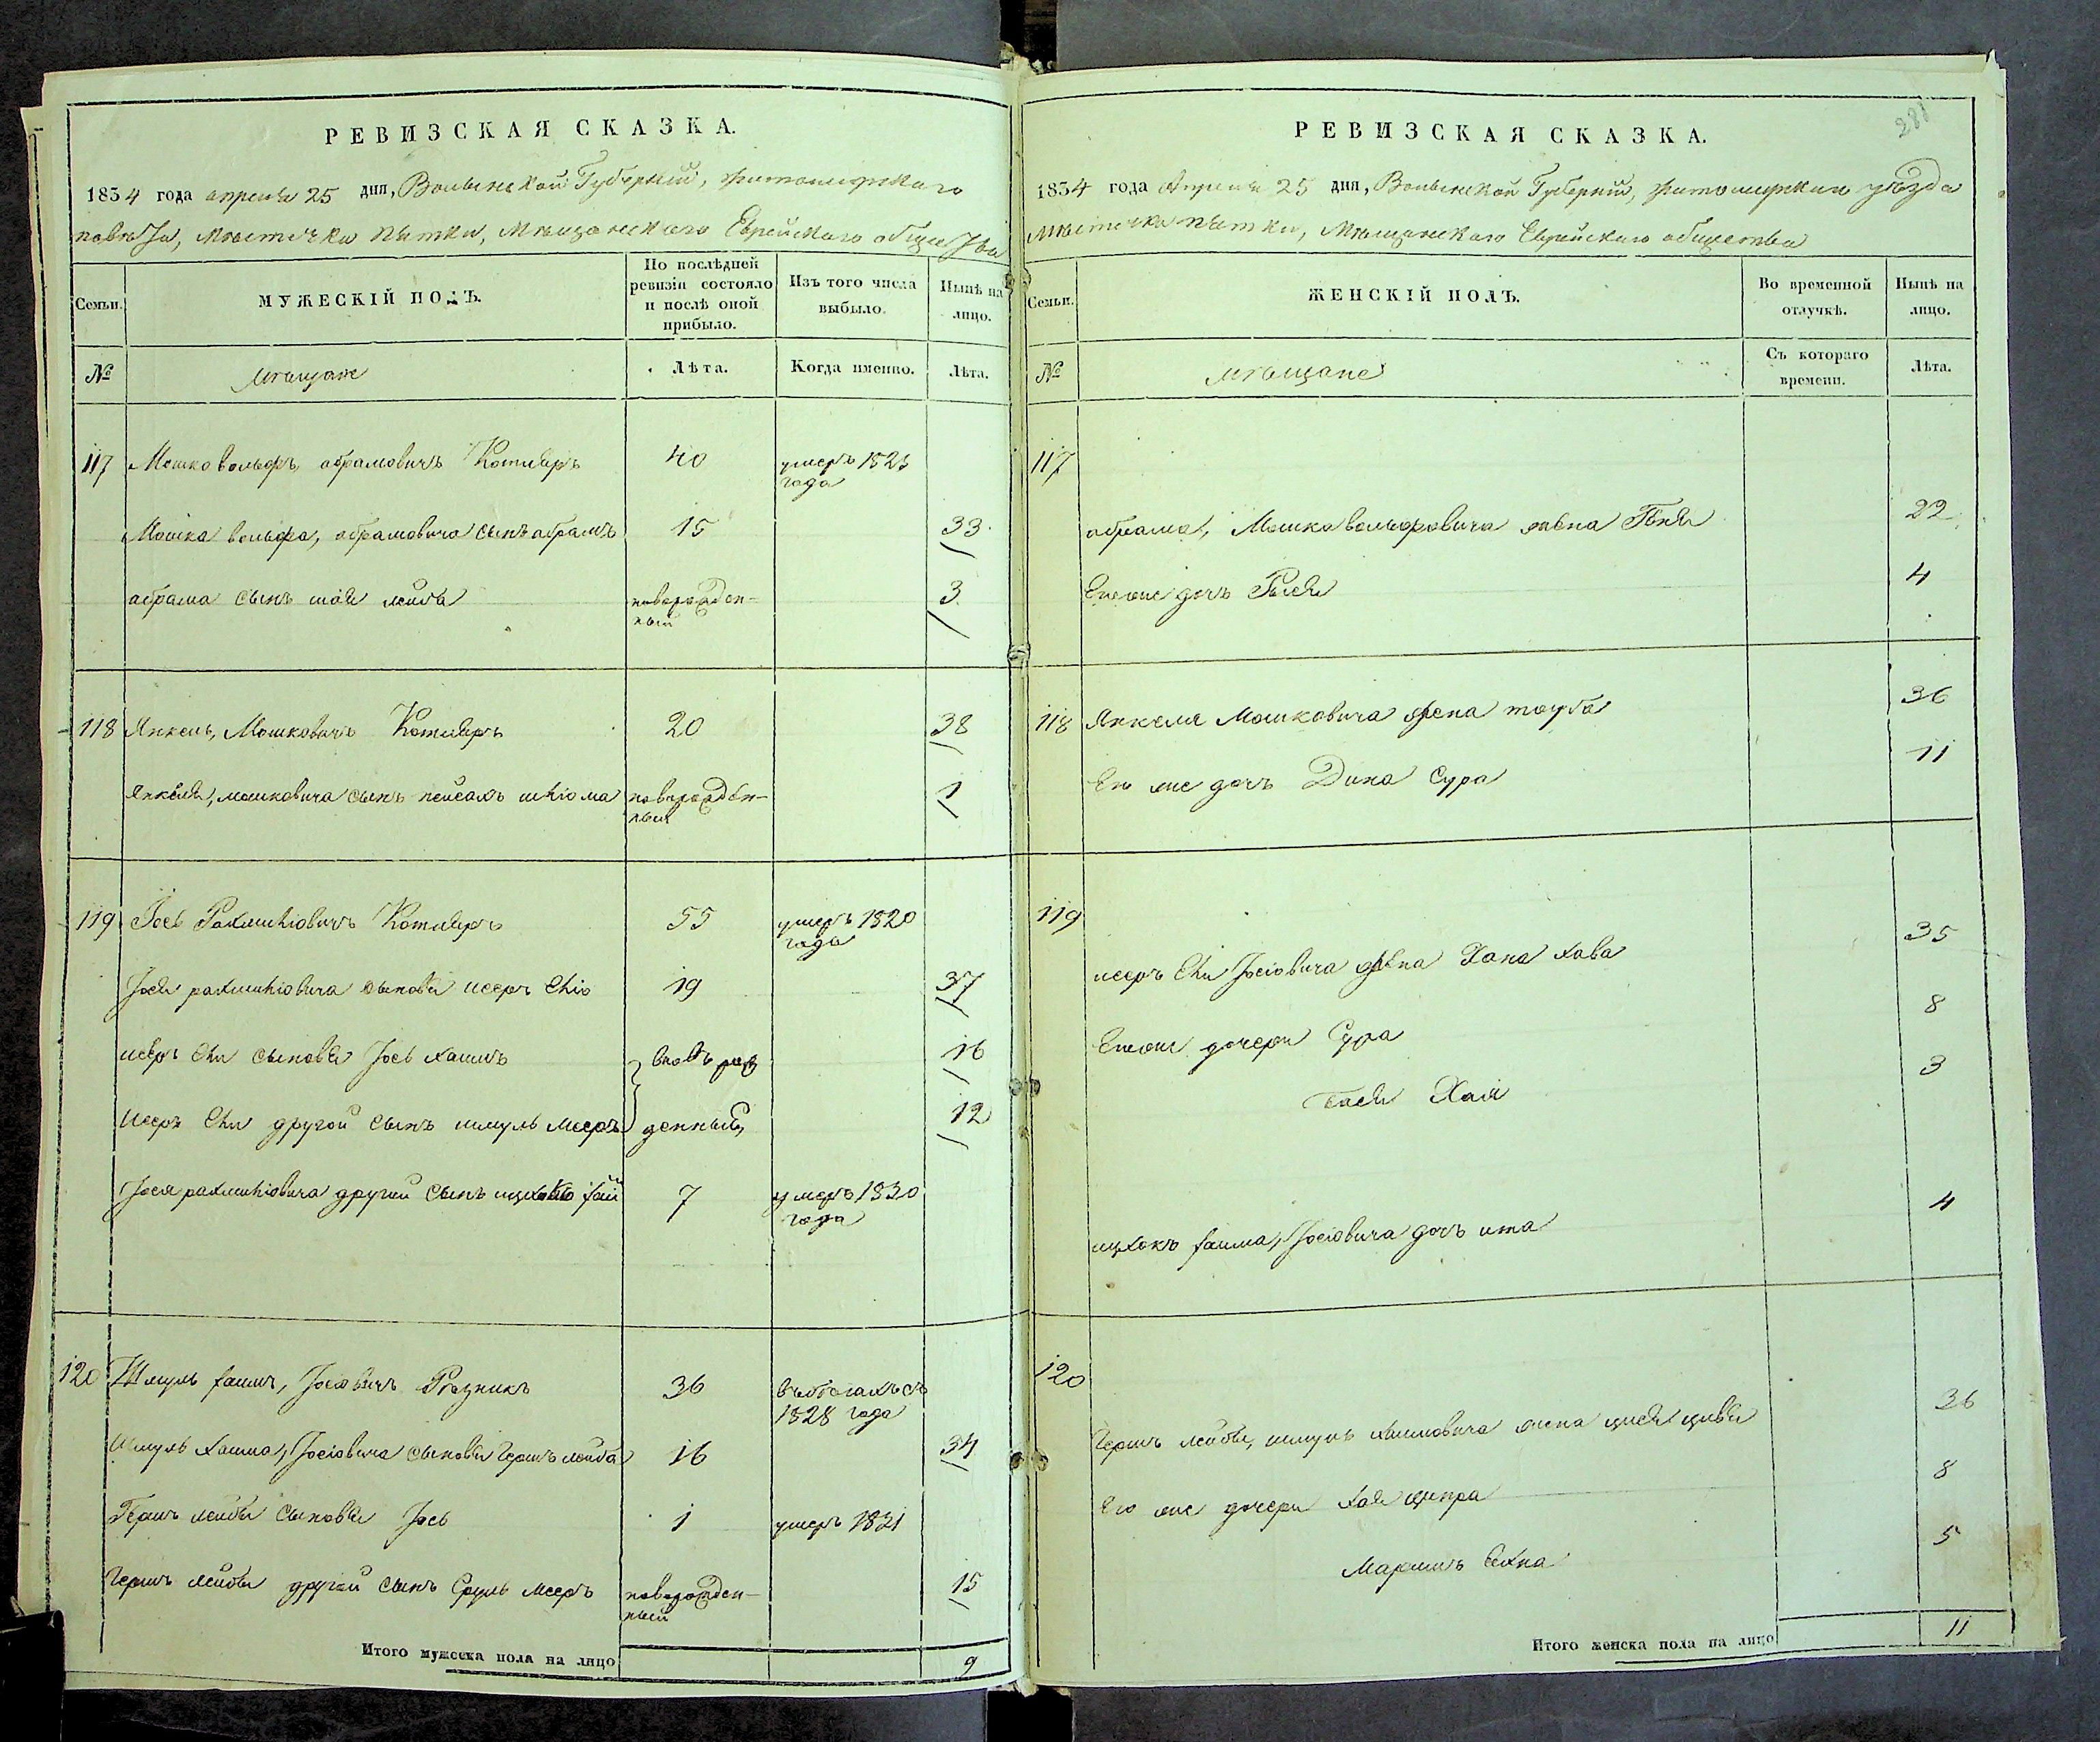 РЕВИЗСКАЯ СКАЗКА.
1834 года апреля 25 дня, Волынской Губерніи, житомирскаго
повета, Мѣстечка пятки, Мѣщанскаго Еврейскаго общества
Семьи.
МУЖЕСКІЙ ПОЛЪ.
По послѣдней ревизіи состояло и послѣ оной прибыло.
Изъ того числа выбыло.
Нынѣ на лицо.
№
мѣщане
Лѣта.
Когда именно.
Лѣта.
117 Мошко вольфъ, абрамовичъ Котляръ 40 умеръ 1823 года
Мошка вольфа, абрамовича сынъ абрамъ 15 33
абрама сынъ шая лейба новорожденный 3
118 Янкель, Мошковичъ Котляръ 20 38
Янкеля, мошковича сынъ пейсахъ шліома новорожденный 1
119 Іось Рахмиліовичъ Котляръ 55 умеръ 1820 года
Іося рахмиліовича сыновя исеръ Еліо 19 37
исеръ Ели сыновя Іось хаимъ вновь рож 16
Исеръ Ели другой сынъ шмуль мееръ денный 12
Іося рахмиліовича другой сынъ 7 умеръ 1830 года
120 Шмуль хаимъ, Іосіовичъ Резникъ 36 въ бегахъ съ 1828 года
Шмуль хаима, Іосіовича сыновя Гершъ лейба 16 34
Гершъ лейбы сыновя Іось 1 умеръ 1831
Гершъ лейбы другой сынъ Сруль мееръ новорожденный 15
Итого мужеска пола на лицо 9
281
РЕВИЗСКАЯ СКАЗКА.
1834 года Апреля 25 дня, Волынской Губерніи, житомирскаго уѣзда
мѣстечка пятки, Мѣщанскаго Еврейскаго общества
Семьи.
ЖЕНСКІЙ ПОЛЪ.
Во временной отлучкѣ.
Нынѣ на лицо.
№
мѣщане
Съ котораго времени.
Лѣта.
117
абрама, Мошко вольфовича жена 22
Его же дочь Рыся 4
118 Янкеля Мошковича жена тауба 36
Его же дочь Дина Сура 11
119
исеръ Ели Іосіовича жена Хана хава 35
Его же дочери Сура 8
бася Хая 3
хаима, Іосіовича дочь ита 4
120
Гершъ лейбы, шмуль хаимовича жена цивя 36
Его же дочери хая ципра 8
5
Итого женска пола на лицо 11